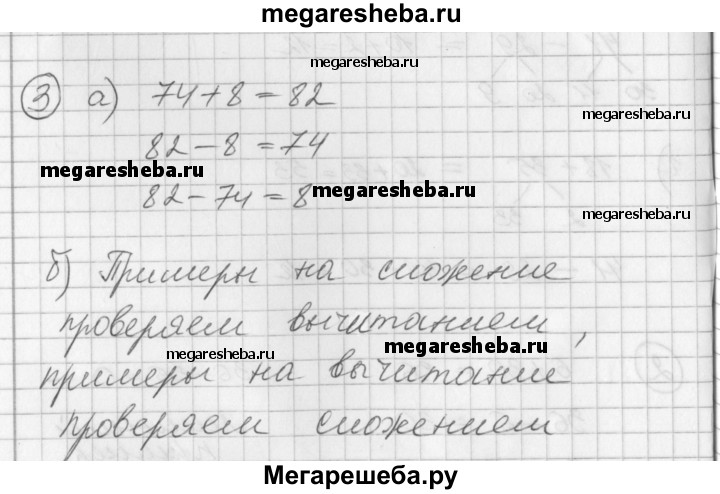 megaresheba.ru
megaresheba.ru
③ а) 74 + 8 = 82
82 - 8 = 74
megaresheba.ru
82 - 74 = 8
megaresheba.ru
megaresheba.ru
б) Примеры на сложение
проверяем вычитанием,
megaresheba.ru
megaresheba.ru
примеры на вычитание
проверяем сложением
Мегарешеба.ру